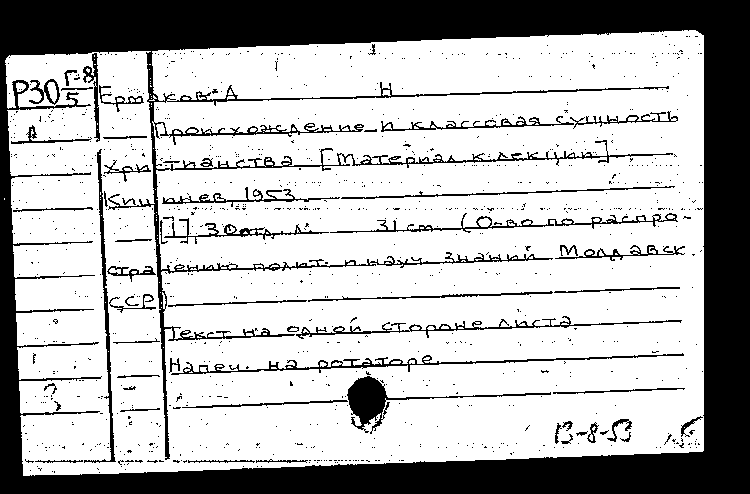 Р30 Г-8/5
Ермаков, А Н
Происхождение и классовая сущность
христианства. [Материал к лекции]
Кишинев, 1953.
[1], 30 отд. л. 31 см (О-во по распро-
странению полит. и науч. знаний Молдавск.
ССР)
Текст на одной стороне листа.
Напеч. на ротаторе.
13-8-53